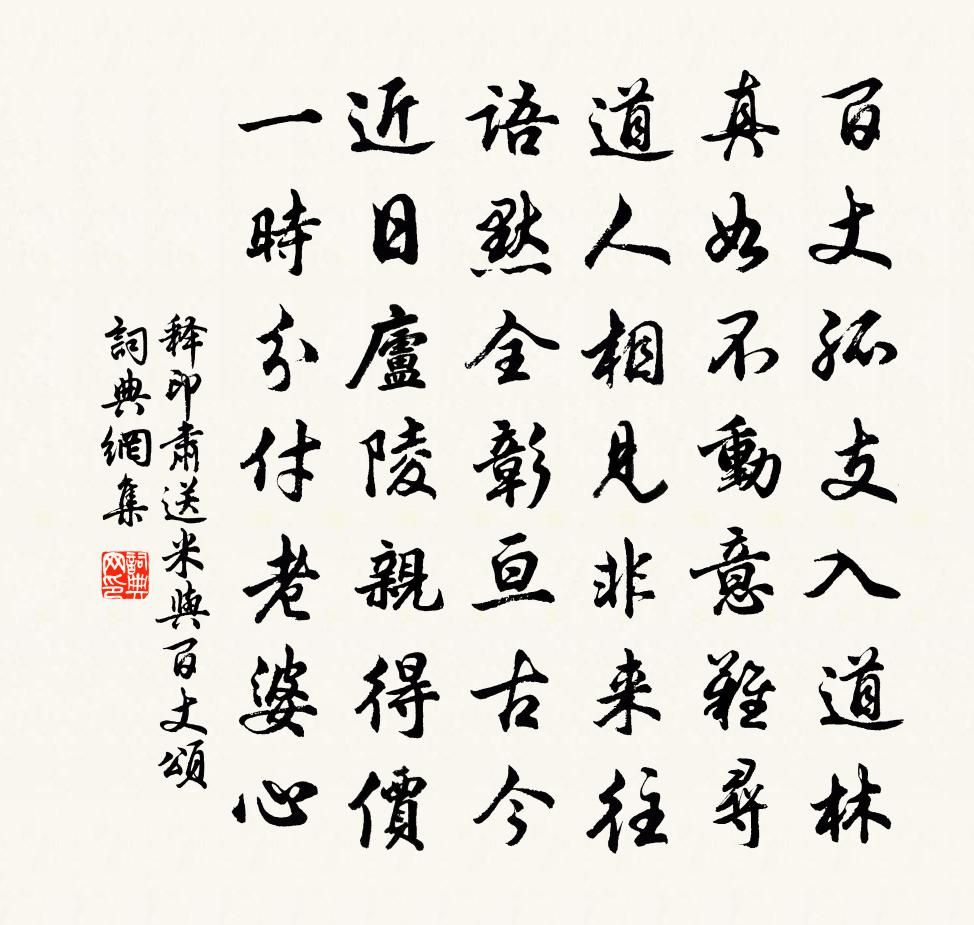 百丈孤支入道林
真如不動意難尋
道人相見非来往
語黙全彰亘古今
近日廬陵親得價
一時分付老婆心
释印肅送米與百丈頌
詞典網集
詞典网印